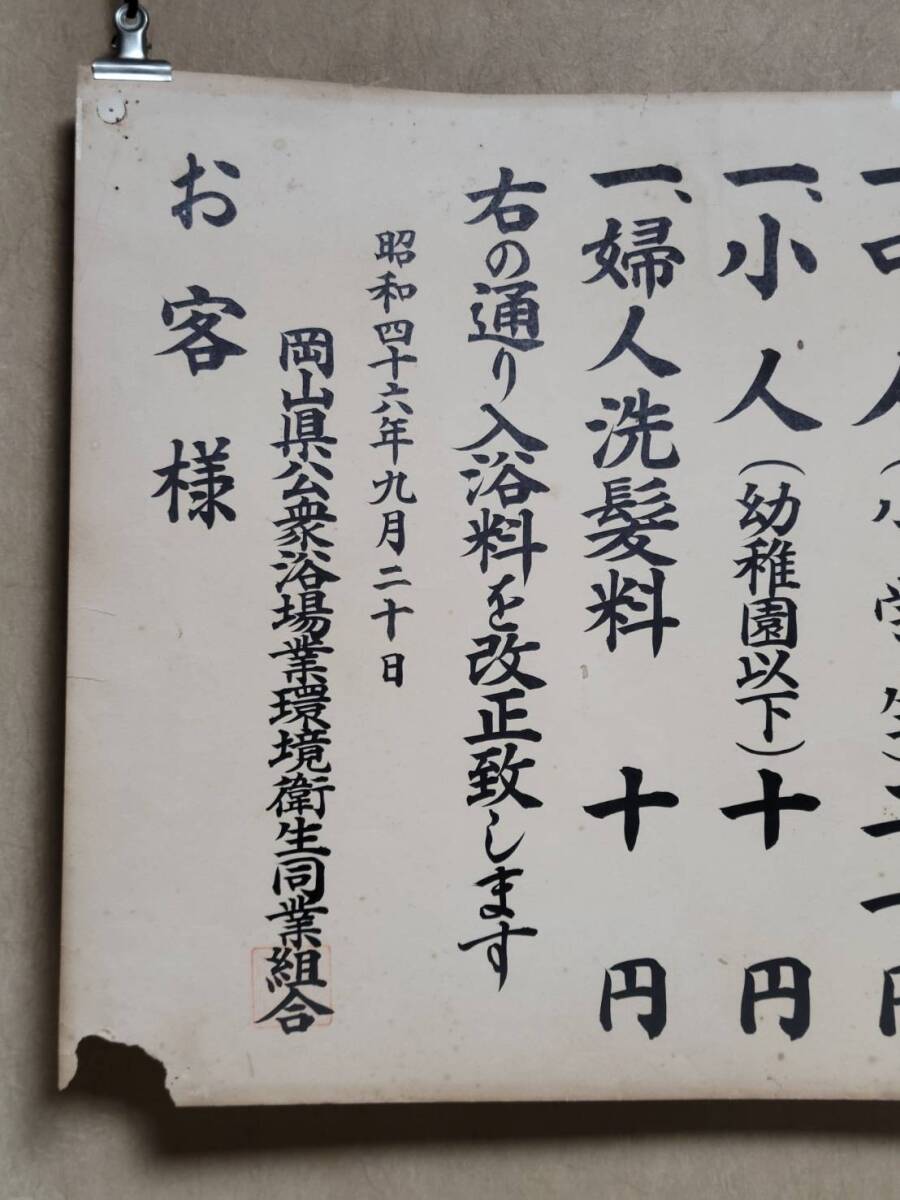 一、中人（小学生）二十円
一、小人（幼稚園以下）十円
一、婦人洗髪料 十円
右の通り入浴料を改正致します
昭和四十六年九月二十日
岡山県公衆浴場業環境衛生同業組合
お客様